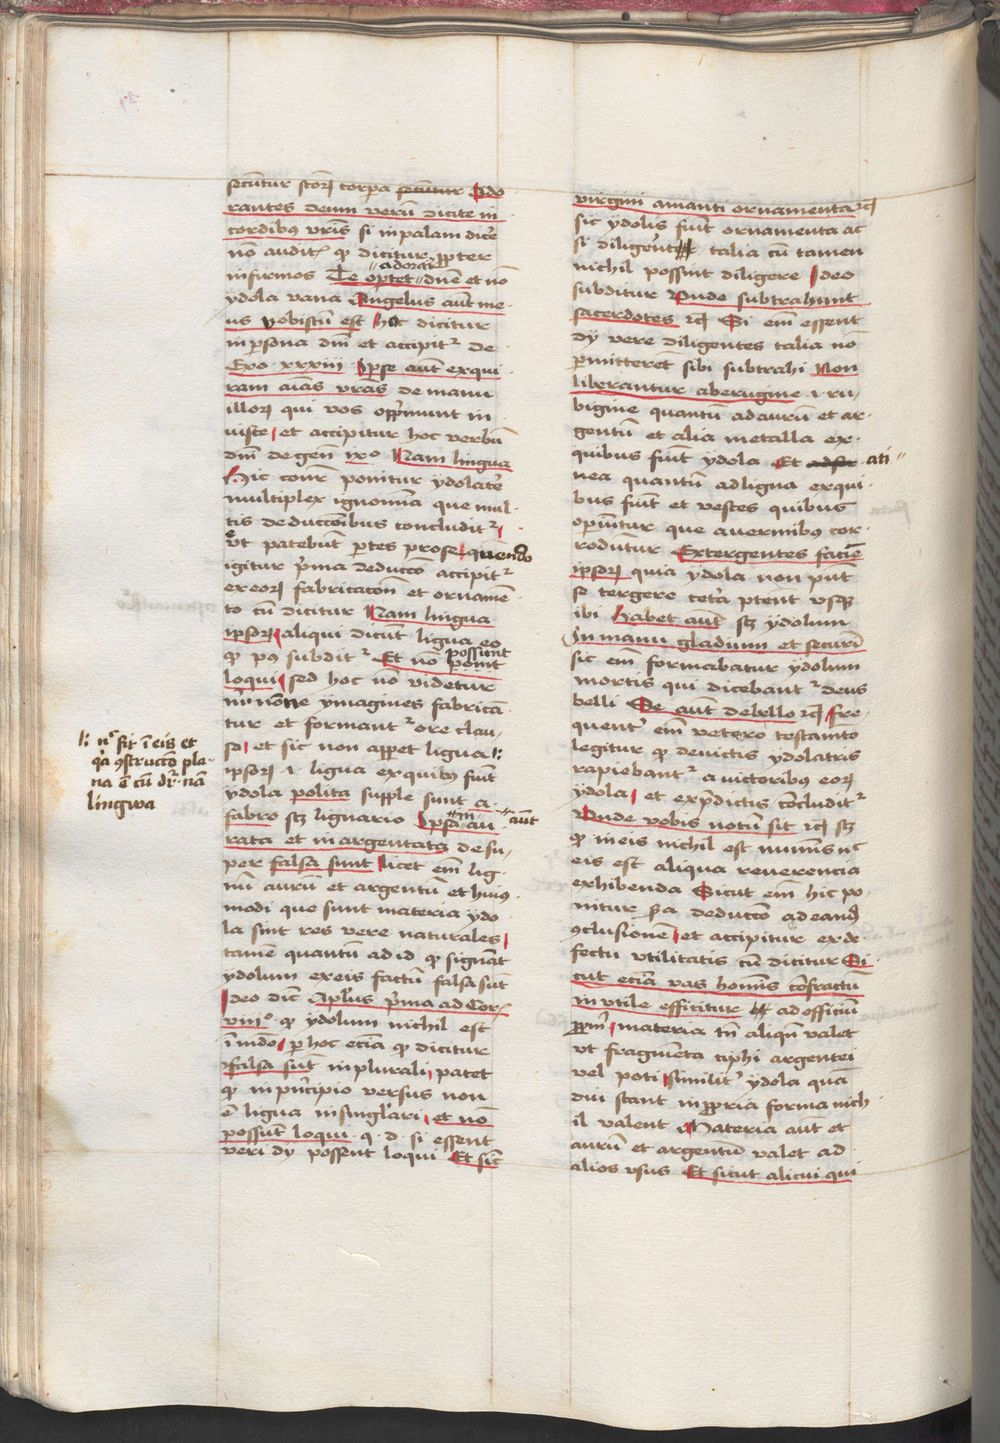 secuntur storꝝ corpa secuntur Ado
rantes deum verū dicite in
cordibꝰ vr̄is si in palam dic'e
nō auditꝭ ꝙ dicitur ꝓpter
infirmos Te optet adorari dn̄e et nō
ydola vana Angelus aūt me
us vobiscū est hoc dicitur
in ꝑsona dn̄i et accipit᷑ de
Exo xxxiii Ipse aūt exqui
ram aīas vr̄as de manu
illorꝝ qui vos opp̄munt in
iuste et accipitur hoc verbū
dn̄i de gen̄ ixo Nam lingua
Hic ponitur ydolat'e
multiplex ignominia que mul
tis deduccōibus concludit᷑
Vt patebūt ꝑtes prose quendo
igitur p̄ma deducco accipit᷑
ex eorꝝ fabricacōn et ornamē
to cū dicitur Nam lingua
ipsorꝝ aliqui dicūt ligua eo
ꝙ pꝰ subdit᷑ Et nō possunt ponit
loqui sed hoc nō videtur
nonne ymagines fabricā
tur et formant᷑ ore clau
so et sic non appet ligua
ipsorꝝ ligua ex quibꝰ fiūt
ydola polita supple sunt a
fabro scz lignario Ipsa aūt au
rata et in argentata desu
per falsa sunt licet em̄ lig
nū aurū et argentū et huiꝰ
modi que sunt materia ydo
la sint res vere naturales
tamē quantū ad id ꝙ signāt
ydolum ex eis factū falsa sūt
Ideo dic̄ Apl'us p̄ma ad Cor
viiiº ꝙ ydolum nichil est
ī mūdo ꝑ hoc eciā ꝙ dicitur
falsa sūt in plurali patet
ꝙ in p̄ncipio versus non
ē ligua in singl'ari et nō
possūt loqui q d si essent
veri dy possent loqui Et sic̄
nº sit ī eis et
q̄a ꝯstruccō pla
na ē cū dr̄ nā
lingwa
virgini amanti ornamenta
sic ydolis fiūt ornamenta ac
si diligent talia cū tamen
nichil possint diligere Ideo
subditur Vnde subtrahunt
sacerdotes Si em̄ essent
dy vere diligentes talia nō
ꝑmitterēt sibi subtrahi Non
liberantur ab erugine ru
bigine quantū ad aurū et ar
gentū et alia metalla ex
quibus fiūt ydola Et ati
nea quantū ad ligna ex qui
bus fiūt et vestes quibus
operiūtur que a vermibꝰ cor
roduntur Extergentes faciē
ipsorꝝ quia ydola non pn̄t
se tergere ceta ptent vsqꝫ
ibi Habet aūt scz ydolum
In manu gladium et securī
sic em̄ formabatur ydolum
mortis qui dicebant᷑ deus
belli Se aūt de bello fre
quent' em̄ vetero testamto
legitur ꝙ deuictis ydolatris
rapiebant᷑ a victoribus eorꝝ
ydola et ex p̄dictis cōcludit᷑
Vnde vobis notū sit scz
ꝙ in eis nichil est numīs nec
eis est aliqua reuerencia
exhibenda Sicut em̄ hic po
nitur deduccō ad eandē
ꝯclusionē et accipitur ex de
fectu vtilitatis cū dicitur Si
cut eciā vas homīs cōfractū
inutile efficitur ad officiū
materia tn̄ aliqn̄ valet
vt fragmēta ciphi argentei
vel poti similit' ydola quā
diu stant in ꝓpria forma nich
il valent Materia aūt et
aurū et argentū valet ad
alios vsus Et sicut alicui qui